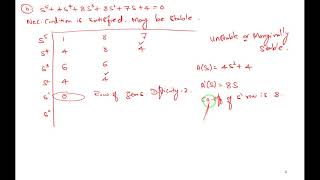 ⑥ s⁵+4s⁴+8s³+8s²+7s+4=0
Nec. Condition is satisfied. May be stable.
s⁵ 1 8 7
s⁴ 4 8 4
s³ 6 6
s² 4 4
s¹ 0 Row of zeros. Difficulty-2.
s⁰
Unstable or Marginally Stable.
A(s) = 4s²+4
A'(s) = 8s
of s¹ row is 8.